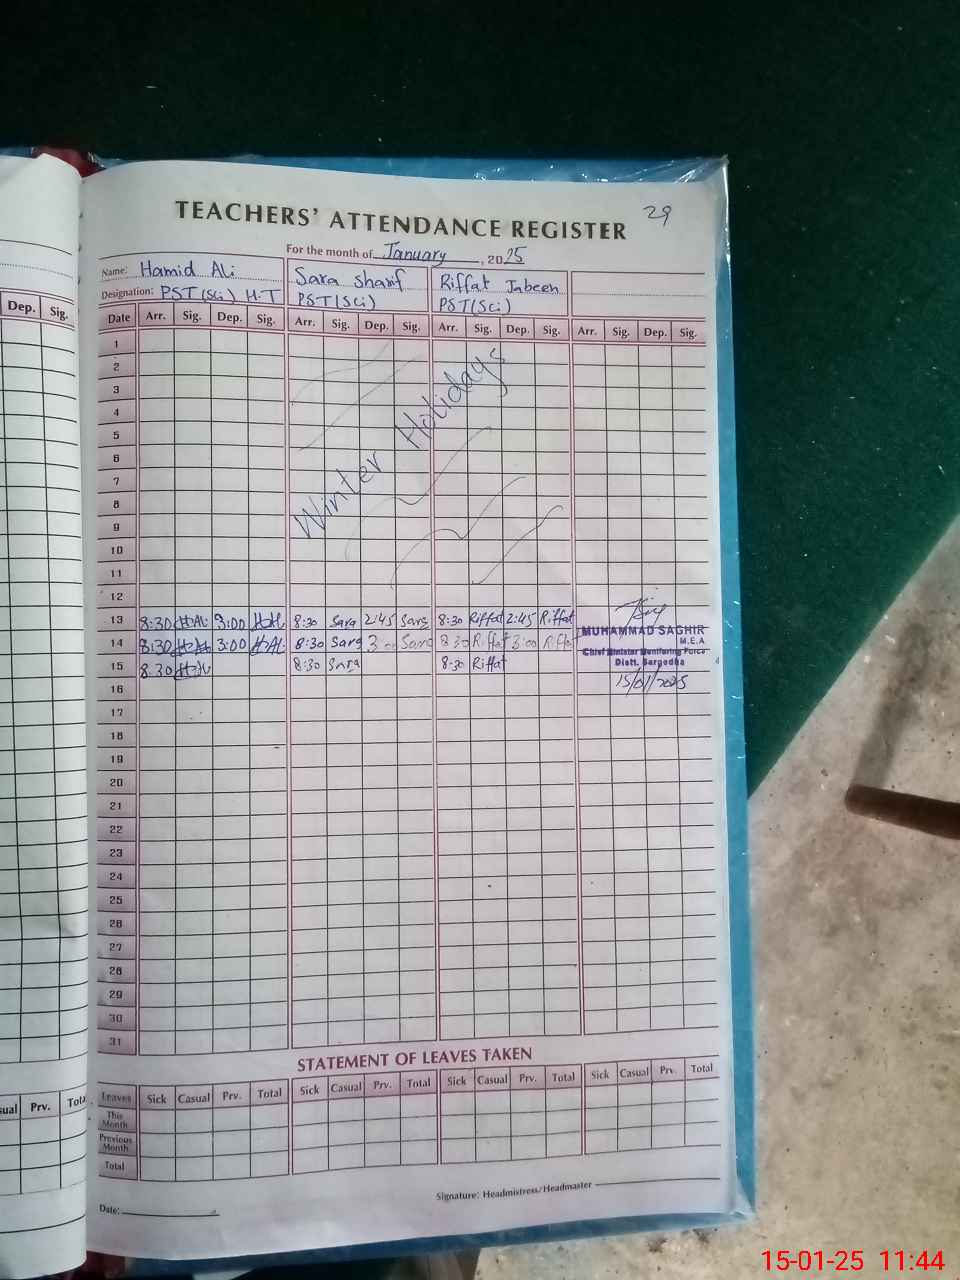 TEACHERS' ATTENDANCE REGISTER 29
For the month of January, 2025
Name: Hamid Ali Sara sharif Riffat Jabeen
Designation: PST(Sci) H.T PST(Sci) PST(Sci)
Dep. Sig.
Date Arr. Sig. Dep. Sig. Arr. Sig. Dep. Sig. Arr. Sig. Dep. Sig. Arr. Sig. Dep. Sig.
1
2
3
4
5
6
7
8
9
10
11
12
Winter Holidays
13 8:30 H.Ali 3:00 H.Ali 8:30 Sara 2:45 Sara 8:30 Riffat 2:45 Riffat
14 8:30 H.Ali 3:00 H.Ali 8:30 Sara 3:00 Sara 8:30 Riffat 3:00 Riffat
15 8:30 H.Ali 8:30 Sara 8:30 Riffat
MUHAMMAD SAGHIR
M.E.A
Chief Minister Monitoring Force
Distt. Sargodha
15/01/2025
16
17
18
19
20
21
22
23
24
25
26
27
28
29
30
31
STATEMENT OF LEAVES TAKEN
Leaves Sick Casual Prv. Total Sick Casual Prv. Total Sick Casual Prv. Total Sick Casual Prv. Total
This Month
Previous Month
Total
Prv.
Signature: Headmistress/Headmaster
Date:
15-01-25 11:44